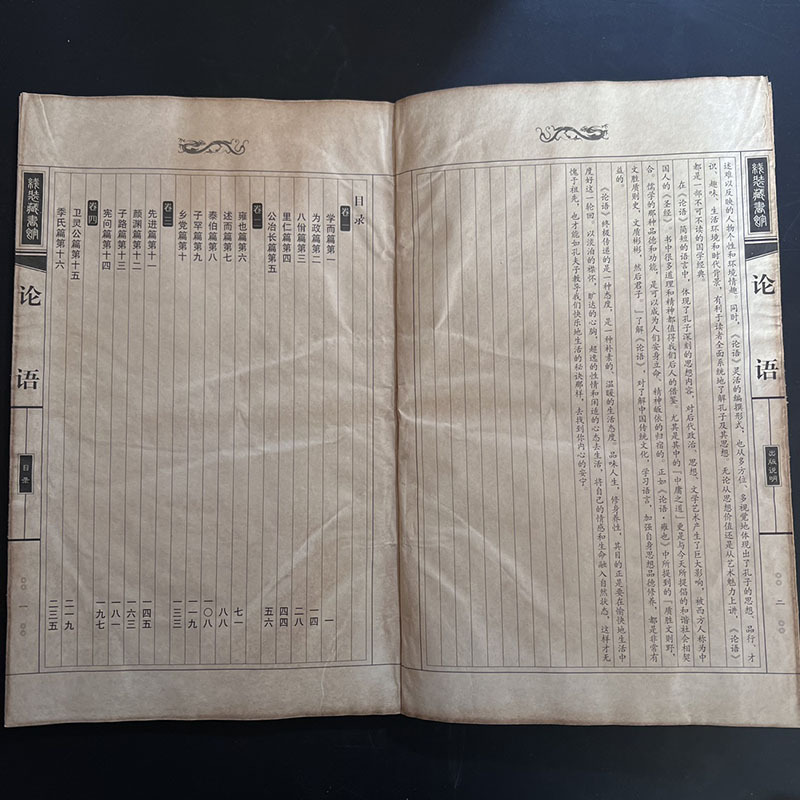 线装藏书馆
论语
出版说明
〇〇二〇〇
述难以反映的人物个性和环境情趣。同时,《论语》灵活的编撰形式,也从多方位、多视觉地体现出了孔子的思想、品行、才
识、趣味、生活环境和时代背景,有利于读者全面系统地了解孔子及其思想。无论从思想价值还是从艺术魅力上讲,《论语》
都是一部不可不读的国学经典。
在《论语》简短的语言中,体现了孔子深刻的思想内容,对后代政治、思想、文学艺术产生了巨大影响,被西方人称为中
国人的《圣经》。书中很多道理和精神都值得我们后人的借鉴。尤其是其中的“中庸之道”更是与今天所提倡的和谐社会相契
合。儒学的那种品德和功能,是可以成为人们安身立命、精神皈依的归宿的。正如《论语·雍也》中所提到的“质胜文则野,
文胜质则史,文质彬彬,然后君子。”了解《论语》,对了解中国传统文化,学习语言,加强自身思想品德修养,都是非常有
益的。
《论语》终极传递的是一种态度,是一种朴素的、温暖的生活态度。品味人生,修身养性,其目的正是要在愉快地生活中
度好这一轮回。以淡泊的襟怀,旷达的心胸,超逸的性情和闲适的心态去生活,将自己的情感和生命融入自然状态,这样才无
愧于祖先,也才能如孔夫子教导我们快乐地生活的秘诀那样,去找到你内心的安宁。
目录
卷一
学而篇第一 一
为政篇第二 一四
八佾篇第三 二八
里仁篇第四 四四
公冶长篇第五 五六
卷二
雍也篇第六 七一
述而篇第七 八八
泰伯篇第八 一〇八
子罕篇第九 一一九
乡党篇第十 一三三
卷三
先进篇第十一 一四五
颜渊篇第十二 一六三
子路篇第十三 一八一
宪问篇第十四 一九七
卷四
卫灵公篇第十五 二一九
季氏篇第十六 二三五
线装藏书馆
论语
目录
〇〇一〇〇